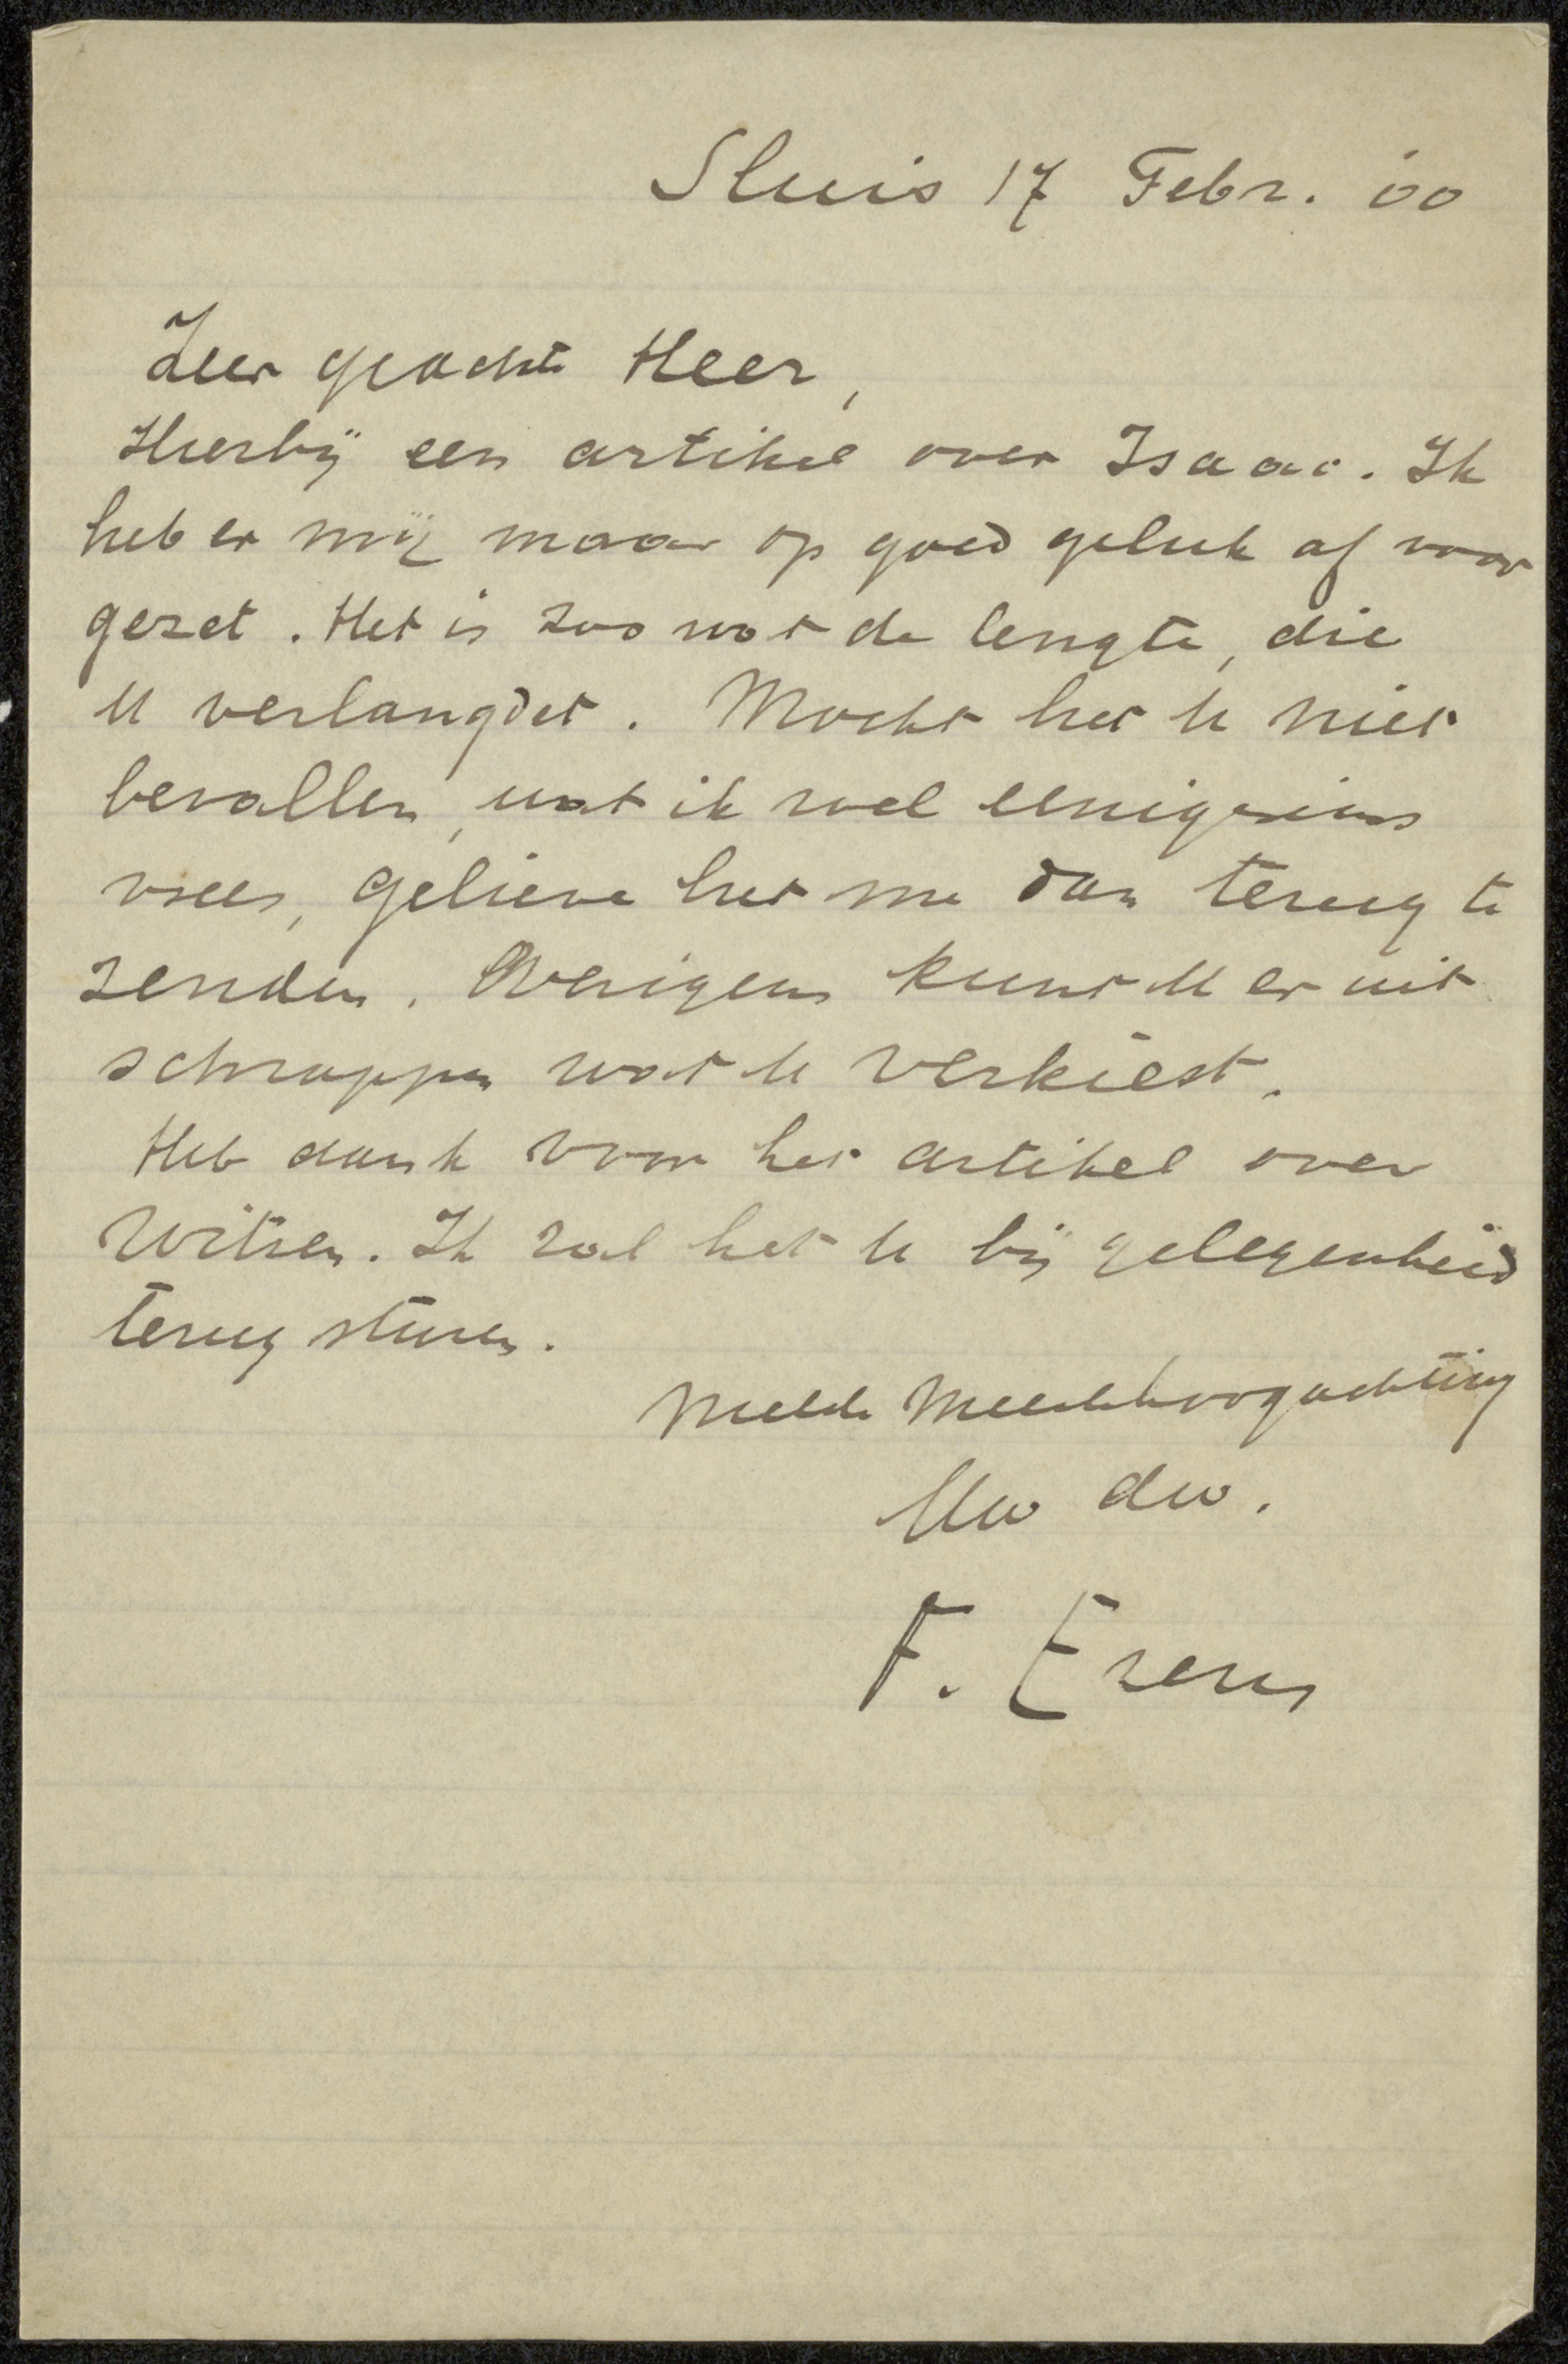 Sluis 17 Febr. 00
Zeer geachte Heer,
Hierbij een artikel over Isaac. Ik
heb er mij maar op goed geluk af voor
gezet. Het is zoo wat de lengte, die
U verlangdet. Mocht het U niet
bevallen, wat ik wel eenigszins
vrees, gelieve het me dan terug te
zenden. Overigens kunt U er uit
schrappen wat U verkiest.
Heb dank voor het artikel over
Witsen. Ik zal het U bij gelegenheid
terug sturen.
Meeste hoogachting
Uw dw.
F. Erens